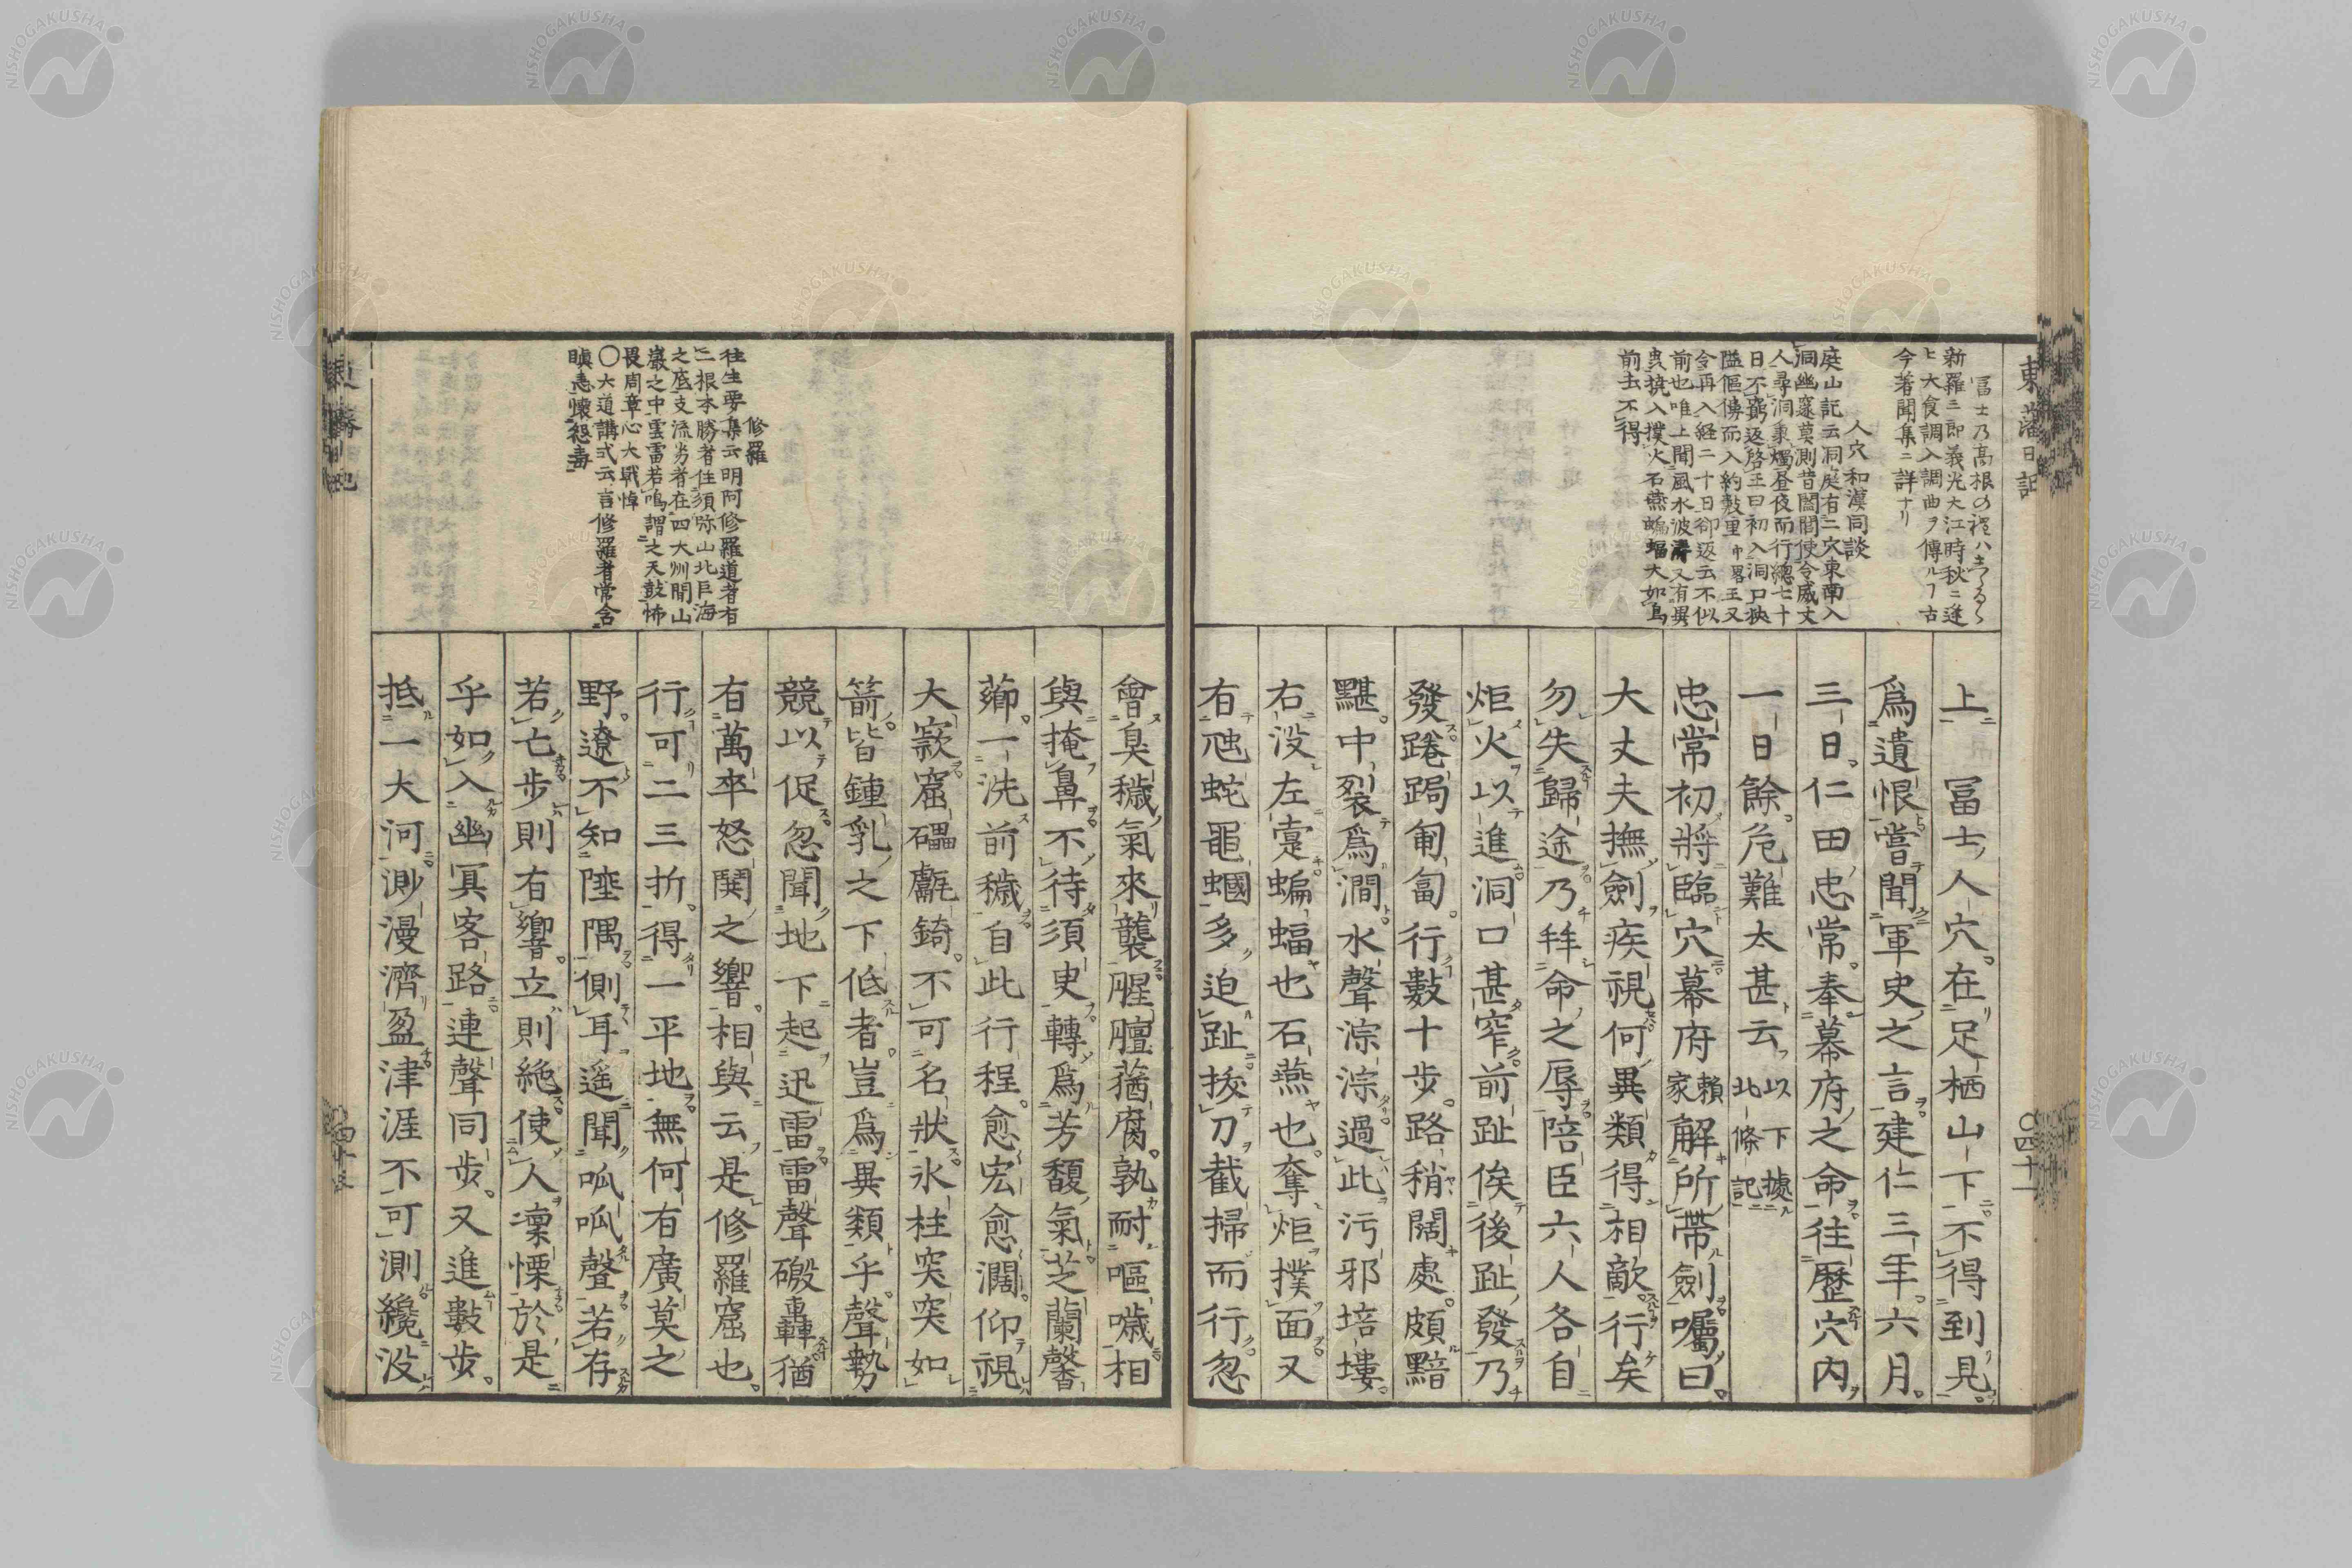 東藩日記
冨士乃高根の
新羅三郎義光大江時秋ニ逢
ヒ大食調入調曲ヲ傳ルヿ古
今著聞集ニ詳ナリ
人穴和漢同談
庭山記云洞庭有二穴東南入
洞幽邃莫測昔闔閭使令威丈
人尋洞秉燭昼夜而行總七十
日不窮返啓王曰初入洞口狹
隘傴僂而入約數里中畧王又
令再入経二十日卻返云不似
前也唯上聞風水波濤又有異
虫撓入撲火石燕蝙蝠大如鳥
前去不得
上 冨士人穴在足栖山下不得到見
爲遺恨嘗聞軍史之言建仁三年六月
三日仁田忠常奉幕府之命往歷穴内
一日餘危難太甚云以下據北條記
忠常初將臨穴幕府頼家解所帶劍囑曰
大丈夫撫劍疾視何異類得相敵行矣
勿失歸途乃拜命之辱陪臣六人各自
炬火以進洞口甚窄前趾俟後趾發乃
發踡跼匍匐行數十步路稍闊處頗黯
黮中裂爲澗水聲淙淙過此汚邪培塿
右没左𡔷蝙蝠也石燕也奪炬撲面又
有虺蛇黽蟈多迫趾拔刀截掃而行忽
〇四十一
會臭穢氣來襲腥膻蕕腐孰耐嘔噦相
與掩鼻不待須臾轉爲芳馥氣芝蘭馨
薌一洗前穢自此行程愈宏愈濶仰視
大窾窟礧甗錡不可名狀氷柱突突如
箭皆鍾乳之下低者豈爲異類乎聲勢
競以促忽聞地下起迅雷雷聲礮轟猶
有萬卒怒鬨之響相與云是修羅窟也
行可二三折得一平地無何有廣莫之
野遼不知陸隅側耳遥聞呱呱聲若存
若亡步則有響立則絶使人凜慄於是
乎如入幽冥客路連聲同步又進數步
抵一大河渺漫濟盈津涯不可測纔没
修羅
往生要集云明阿修羅道者有
二根本勝者住須弥山北巨海
之底支流劣者在四大州間山
巖之中雲雷若鳴謂之天鼓怖
畏周章心大戰悼
〇六道講式云言修羅者常含
瞋恚懷怨毒